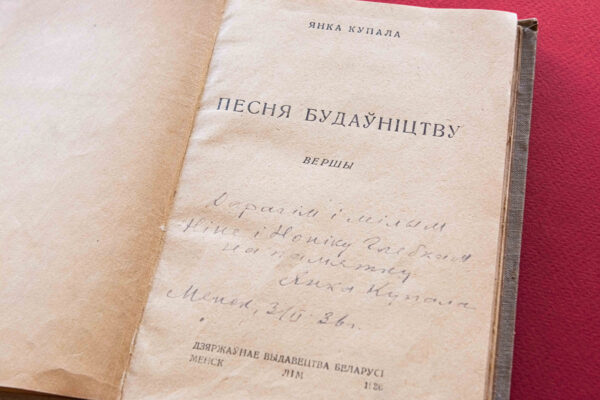 ЯНКА КУПАЛА
ПЕСНЯ БУДАЎНІЦТВУ
ВЕРШЫ
Дарагім і мілым
Ніне і Нопіку Глебкам
на памятку
Янка Купала
Менск, 3/II-36 г.
ДЗЯРЖАЎНАЕ ВЫДАВЕЦТВА БЕЛАРУСІ
МЕНСК ЛІМ 1936